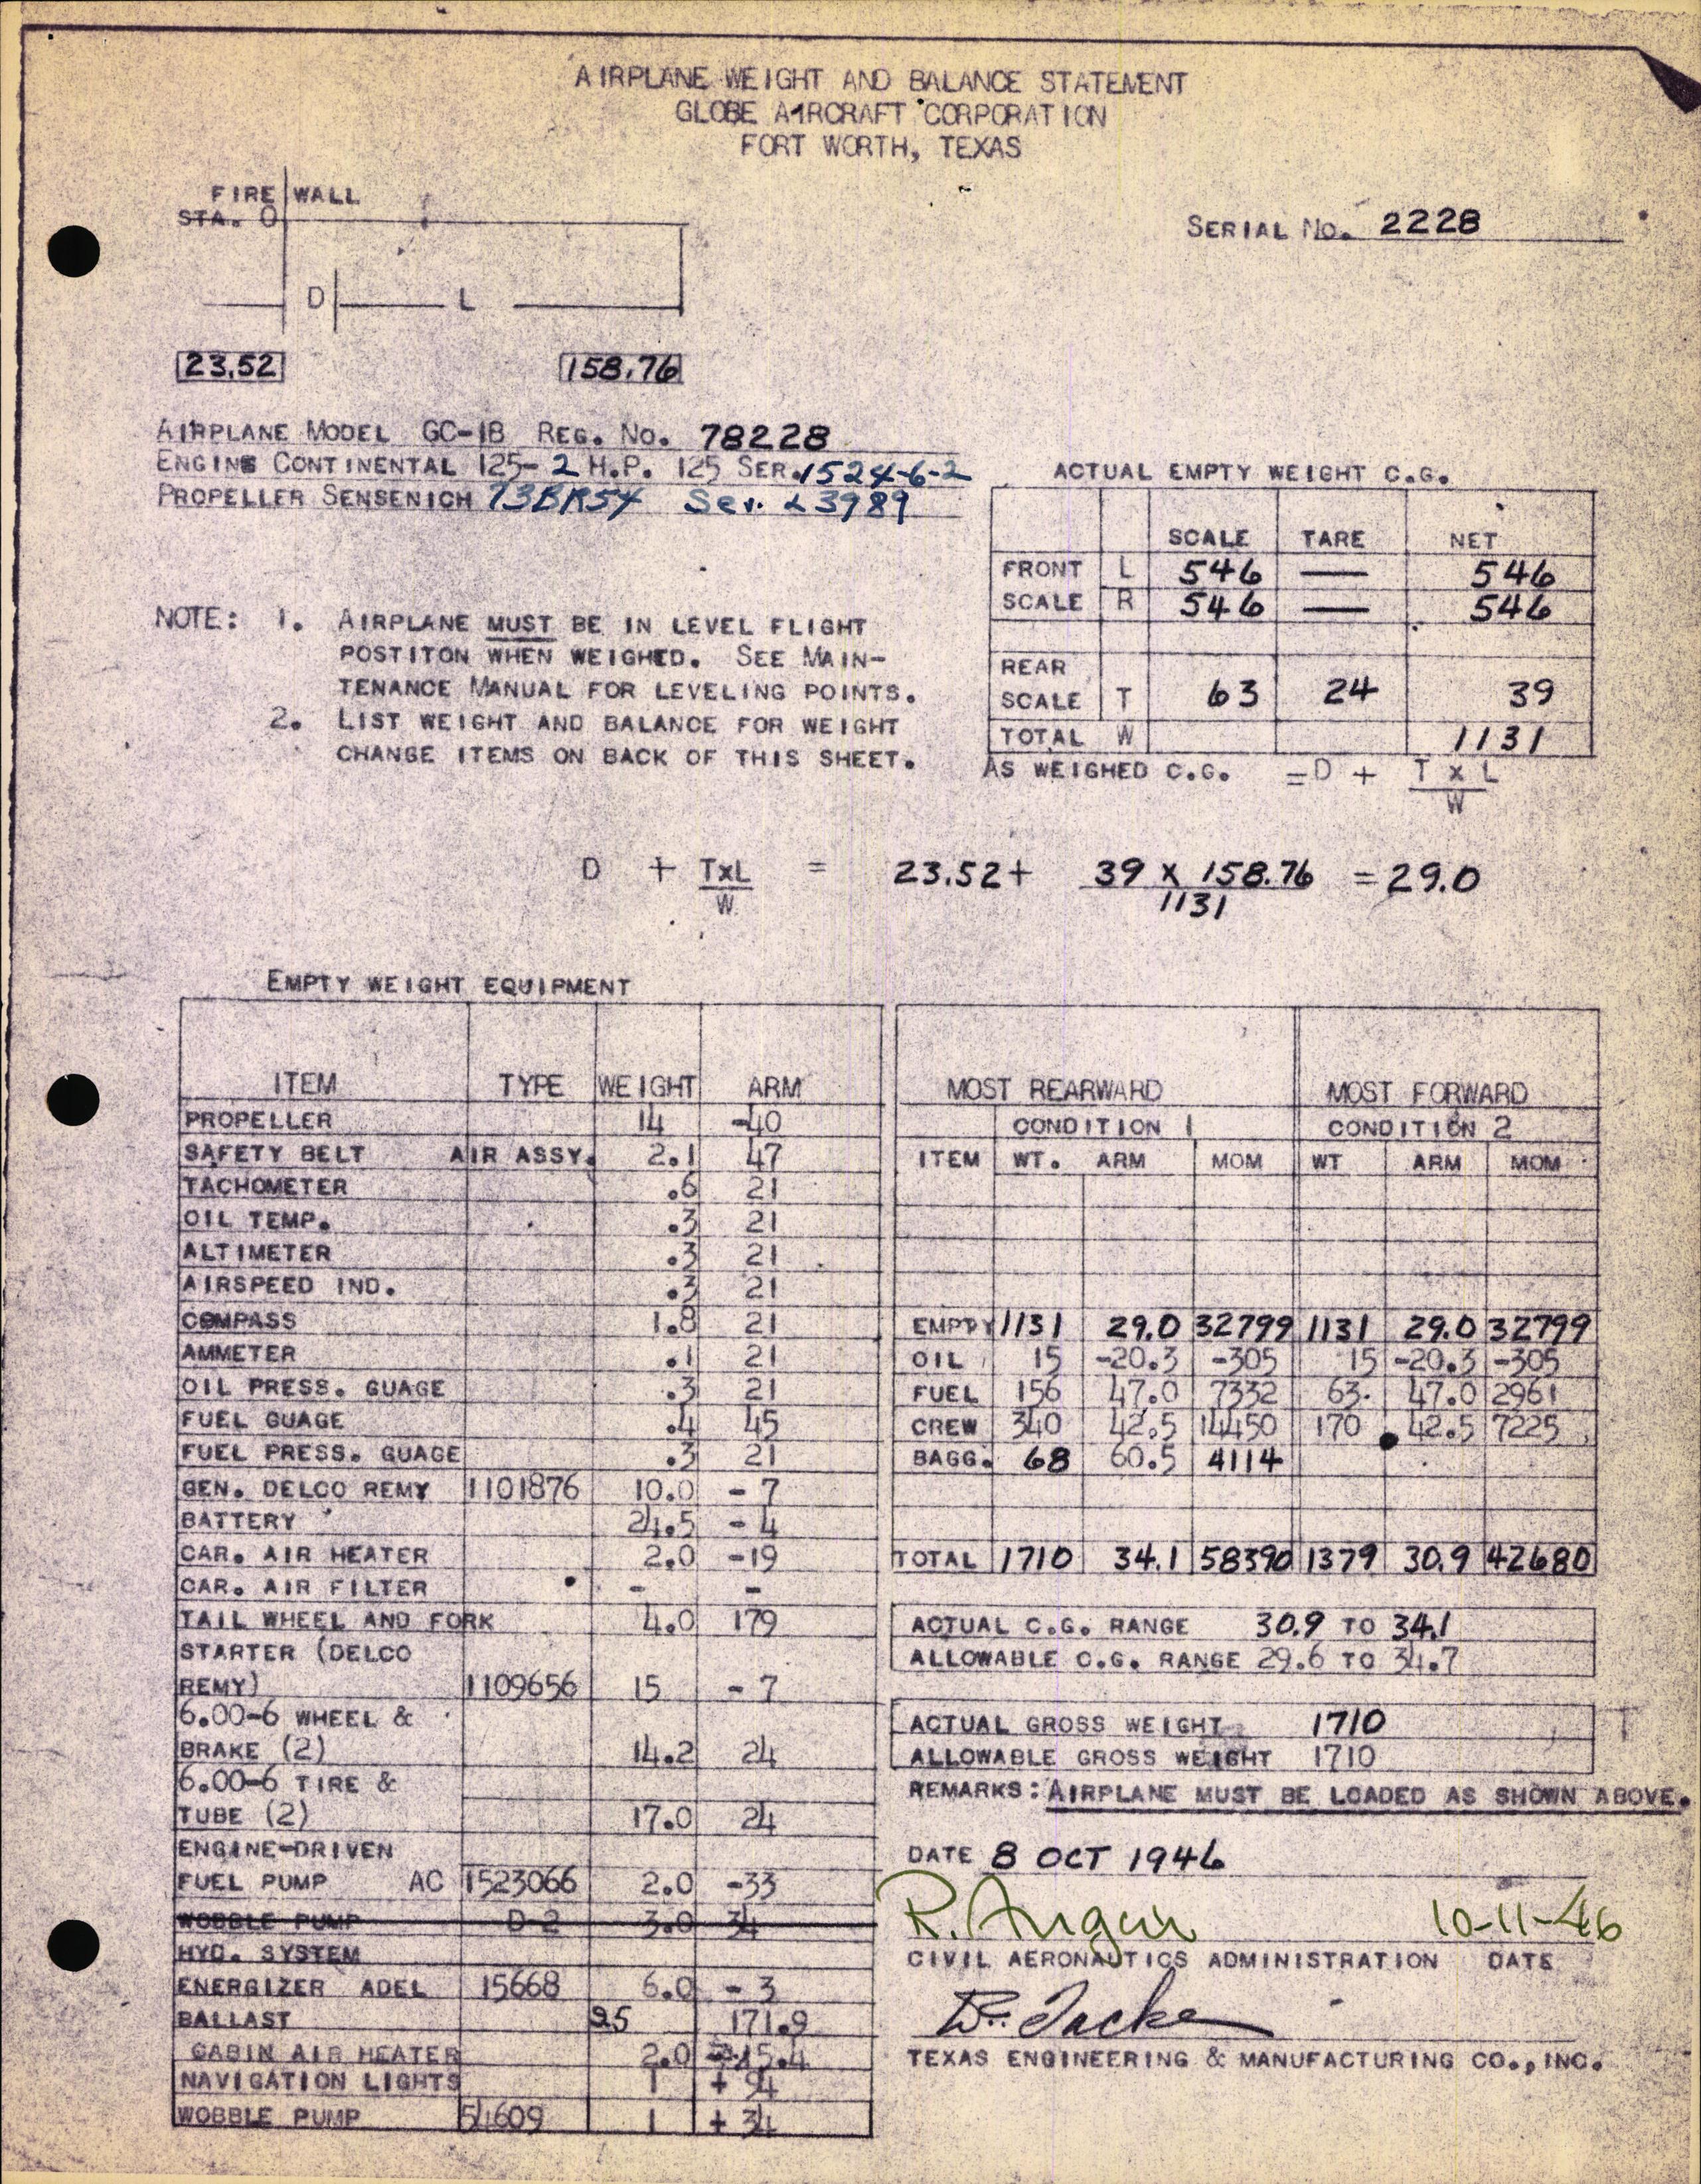 AIRPLANE WEIGHT AND BALANCE STATEMENT
GLOBE AIRCRAFT CORPORATION
FORT WORTH, TEXAS
FIRE WALL
STA. 0
SERIAL NO. 2228
D L
23.52 158.76
AIRPLANE MODEL GC-1B REG. NO. 78228
ENGINE CONTINENTAL 125-2 H.P. 125 SER. 1524-6-2
PROPELLER SENSENICH 73BR54 Ser. 23989
ACTUAL EMPTY WEIGHT C.G.
SCALE TARE NET
FRONT L 546 — 546
SCALE R 546 — 546
REAR
SCALE T 63 24 39
TOTAL W 1131
AS WEIGHED C.G. = D + T x L
W
NOTE: 1. AIRPLANE MUST BE IN LEVEL FLIGHT
POSTITON WHEN WEIGHED. SEE MAIN-
TENANCE MANUAL FOR LEVELING POINTS.
2. LIST WEIGHT AND BALANCE FOR WEIGHT
CHANGE ITEMS ON BACK OF THIS SHEET.
D + TxL = 23.52 + 39 x 158.76 = 29.0
W 1131
EMPTY WEIGHT EQUIPMENT
ITEM TYPE WEIGHT ARM
PROPELLER 14 -40
SAFETY BELT AIR ASSY. 2.1 47
TACHOMETER .6 21
OIL TEMP. .3 21
ALTIMETER .3 21
AIRSPEED IND. .3 21
COMPASS 1.8 21
AMMETER .1 21
OIL PRESS. GUAGE .3 21
FUEL GUAGE .4 45
FUEL PRESS. GUAGE .3 21
GEN. DELCO REMY 1101876 10.0 - 7
BATTERY 24.5 - 4
CAR. AIR HEATER 2.0 -19
CAR. AIR FILTER - -
TAIL WHEEL AND FORK 4.0 179
STARTER (DELCO
REMY) 1109656 15 - 7
6.00-6 WHEEL &
BRAKE (2) 14.2 24
6.00-6 TIRE &
TUBE (2) 17.0 24
ENGINE-DRIVEN
FUEL PUMP AC 1523066 2.0 -33
WOBBLE PUMP D-2 3.0 34
HYD. SYSTEM
ENERGIZER ADEL 15668 6.0 - 3
BALLAST 25 171.9
CABIN AIR HEATER 2.0 15.4
NAVIGATION LIGHTS 1 + 94
WOBBLE PUMP 54609 1 + 34
MOST REARWARD MOST FORWARD
CONDITION 1 CONDITION 2
ITEM WT. ARM MOM WT ARM MOM
EMPTY 1131 29.0 32799 1131 29.0 32799
OIL 15 -20.3 -305 15 -20.3 -305
FUEL 156 47.0 7332 63. 47.0 2961
CREW 340 42.5 14450 170 42.5 7225
BAGG. 68 60.5 4114
TOTAL 1710 34.1 58390 1379 30.9 42680
ACTUAL C.G. RANGE 30.9 TO 34.1
ALLOWABLE C.G. RANGE 29.6 TO 34.7
ACTUAL GROSS WEIGHT 1710
ALLOWABLE GROSS WEIGHT 1710
REMARKS: AIRPLANE MUST BE LOADED AS SHOWN ABOVE.
DATE 8 OCT 1946
R. 10-11-46
CIVIL AERONAUTICS ADMINISTRATION DATE
TEXAS ENGINEERING & MANUFACTURING CO., INC.